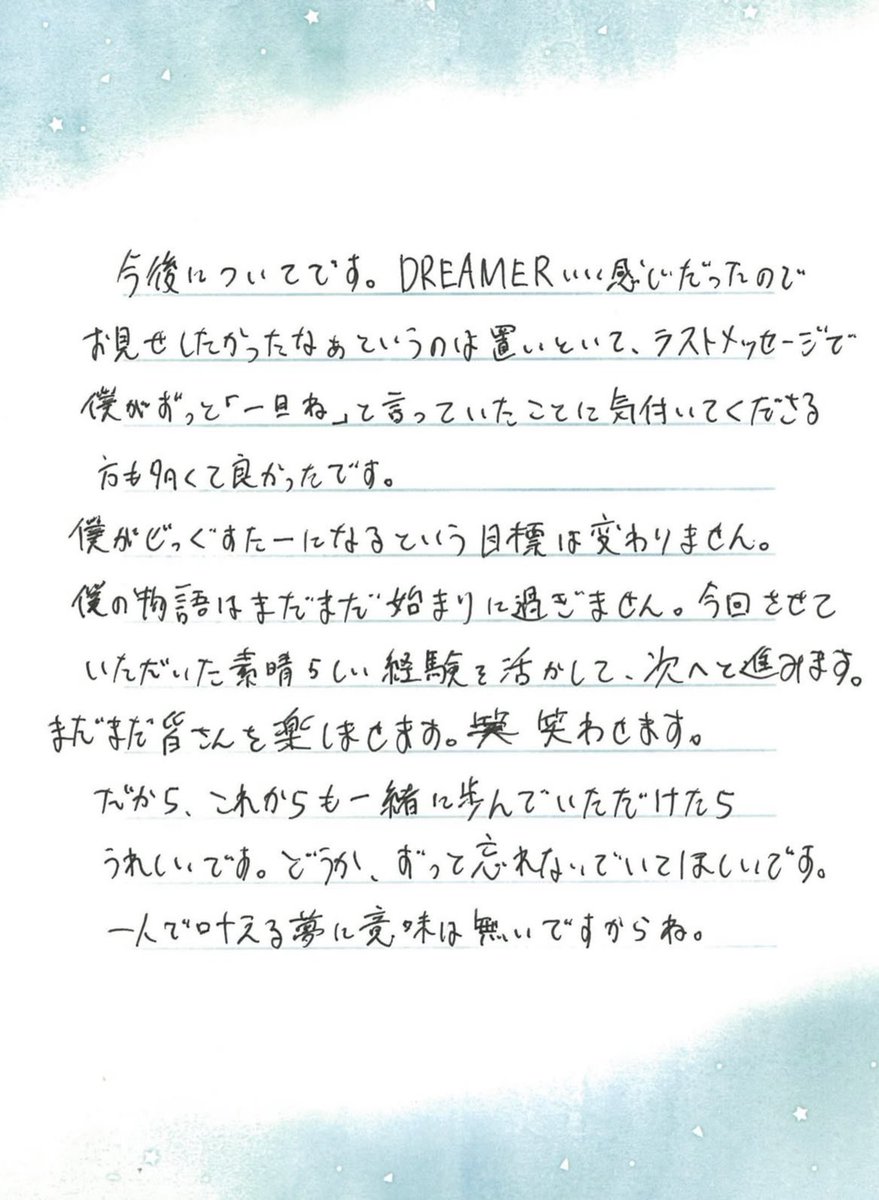 今後についてです。DREAMERいい感じだったので
お見せしたかったなぁというのは置いといて、ラストメッセージで
僕がずっと「一旦ね」と言っていたことに気付いてくださる
方も多くて良かったです。
僕がびっぐすたーになるという目標は変わりません。
僕の物語はまだまだ始まりに過ぎません。今回させて
いただいた素晴らしい経験を活かして、次へと進みます。
まだまだ皆さんを楽しませます。笑わせます。
だから、これからも一緒に歩んでいただけたら
うれしいです。どうか、ずっと忘れないでいてほしいです。
一人で叶える夢に意味は無いですからね。